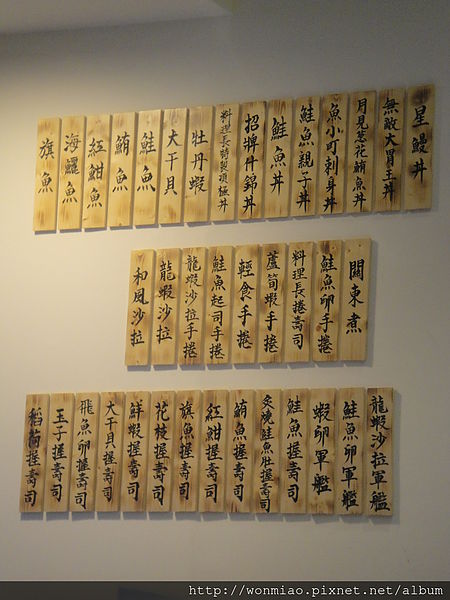 星鰻丼
無敵大胃王丼
月見葱花鮪魚丼
魚小町刺身丼
鮭魚親子丼
鮭魚丼
招牌什錦丼
料理長特製頂極丼
牡丹蝦
大干貝
鮭魚
鮪魚
紅魽魚
海鱺魚
旗魚
關東煮
鮭魚卵手捲
料理長捲壽司
蘆筍蝦手捲
輕食手捲
鮭魚起司手捲
龍蝦沙拉手捲
龍蝦沙拉
和風沙拉
龍蝦沙拉軍艦
鮭魚卵軍艦
蝦卵軍艦
鮭魚握壽司
炙燒鮭魚肚握壽司
鮪魚握壽司
紅魽握壽司
旗魚握壽司
花枝握壽司
鮮蝦握壽司
大干貝握壽司
飛魚卵握壽司
玉子握壽司
稻荷握壽司
http://wonmiao.pixnet.net/album